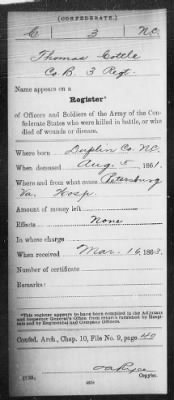 (CONFEDERATE.)
C 3 N.C.
Thomas Cottle
Co. B. 3 Regt.
Name appears on a
Register*
of Officers and Soldiers of the Army of the Confederate States who were killed in battle, or who
died of wounds or disease.
Where born Duplin Co. N.C.
When deceased Aug. 5 1861.
Where and from what cause Petersburg
Va. Hosp.
Amount of money left
Effects None
In whose charge
When received Mar. 16, 1863.
Number of certificate
Remarks:
*This register appears to have been compiled in the Adjutant
and Inspector General's Office from returns furnished by Hospitals
and by Regimental and Company Officers.
Confed. Arch., Chap. 10, File No. 9, page 40
Copyist.